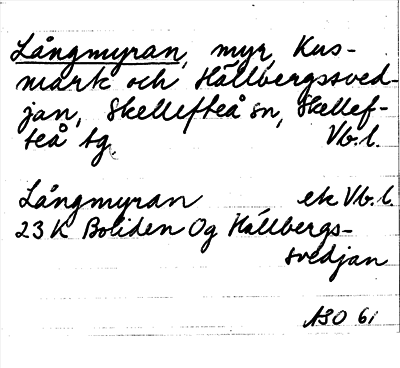 Långmyran, myr, Kus-
mark och Hällbergssved-
jan, Skellefteå sn, Skellef-
teå tg. Vb.l.
Långmyran ek Vb.l.
23 K Boliden Og Hällbergs-
svedjan
ASO 61